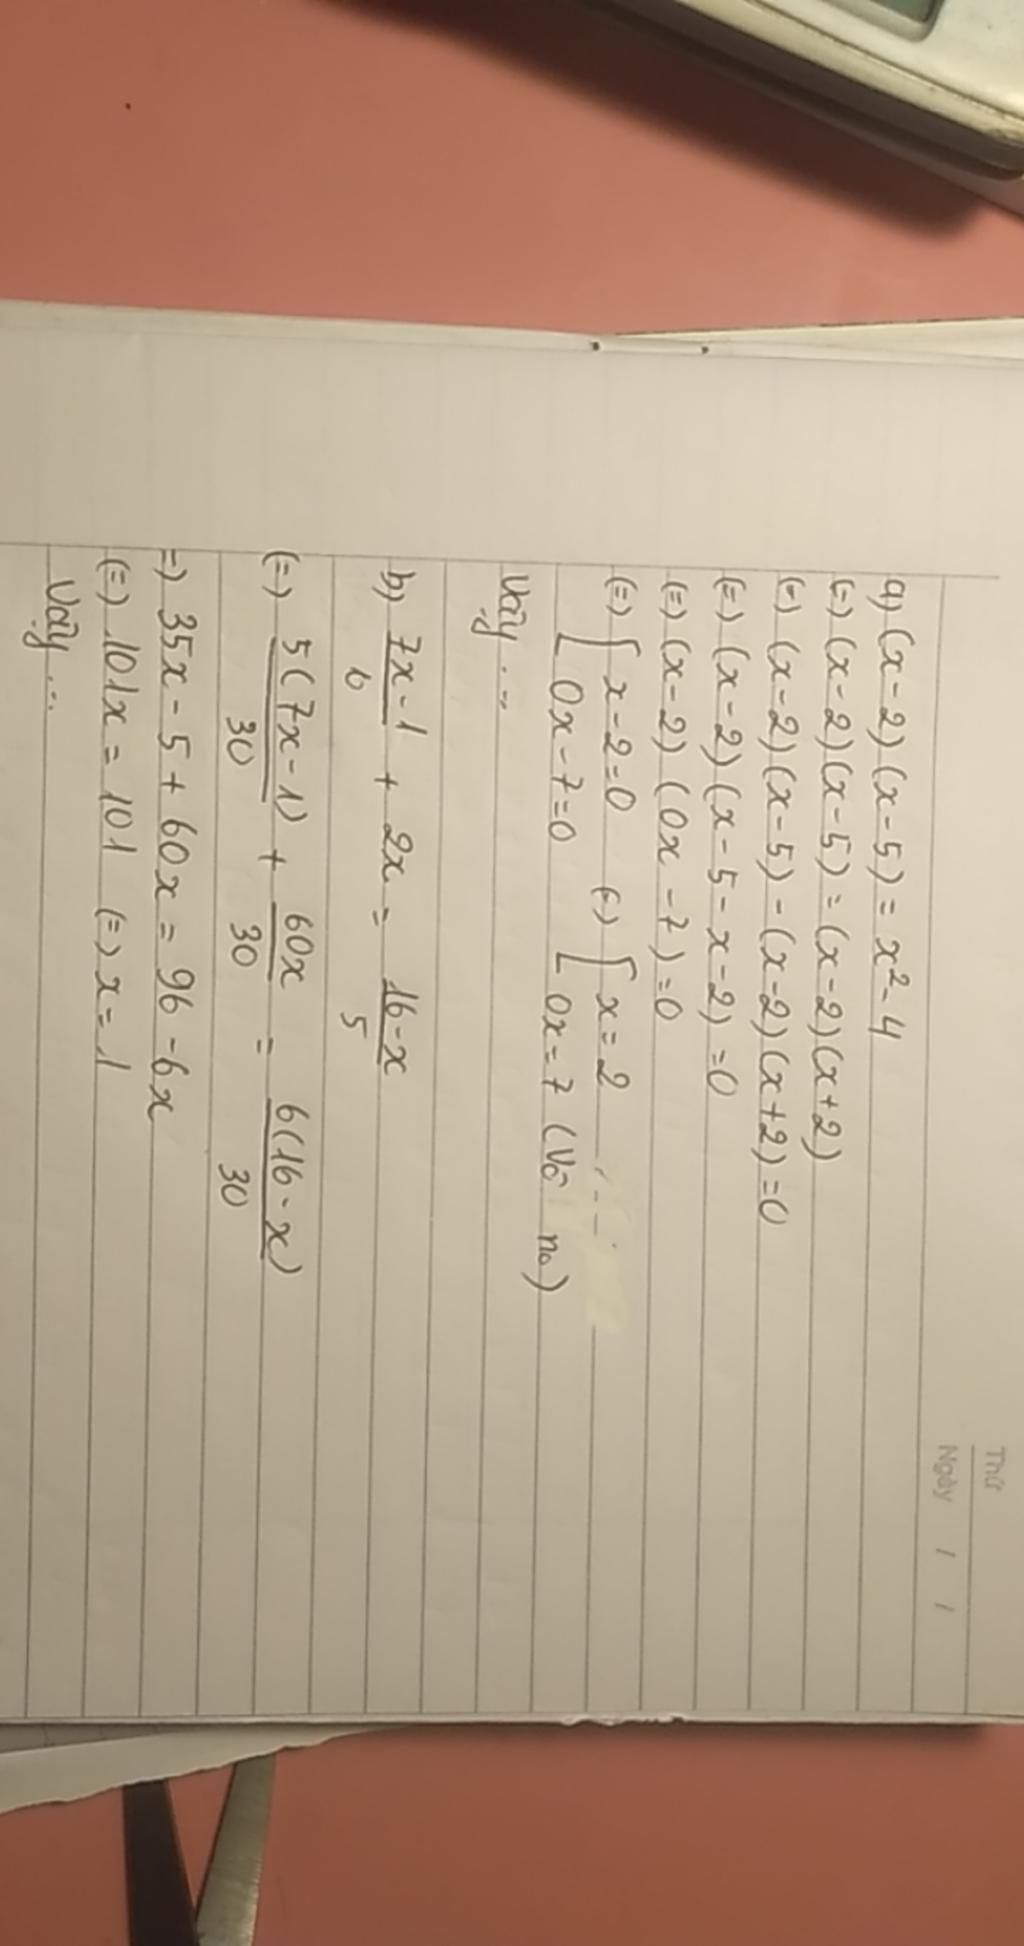 Thứ
Ngày / /
a) (x-2)(x-5) = x²-4
(=) (x-2)(x-5) = (x-2)(x+2)
(=) (x-2)(x-5) - (x-2)(x+2) = 0
(=) (x-2)(x-5-x-2) = 0
(=) (x-2)(0x-7) = 0
(=) [ x-2=0 (=) [ x=2
[ 0x-7=0 [ 0x=7 (Vô no)
Vậy ...
b) 7x-1/6 + 2x = 16-x/5
(=) 5(7x-1)/30 + 60x/30 = 6(16-x)/30
=) 35x-5+60x = 96-6x
(=) 101x = 101 (=) x=1
Vậy ...